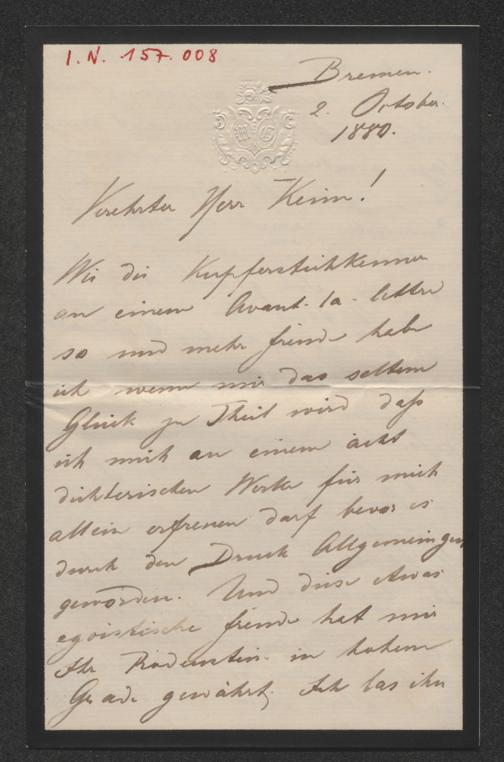 I.N. 157.008
Bremen.
2. October.
1880.
Verehrter Herr Keim!
Wie die Kupferstichkenner
an einem Avant-la-lettre
so und mehr freude habe
ich wenn mir das seltene
Glück zu Theil wird daß
ich mich an einem ächt
dichterischen Werke für mich
allein erfreuen darf bevor es
durch den Druck Allgemeingut
geworden. Und diese etwas
egoistische freude hat mir
Ihr Rodenstein in hohem
Grade gewährt. Ich las ihn